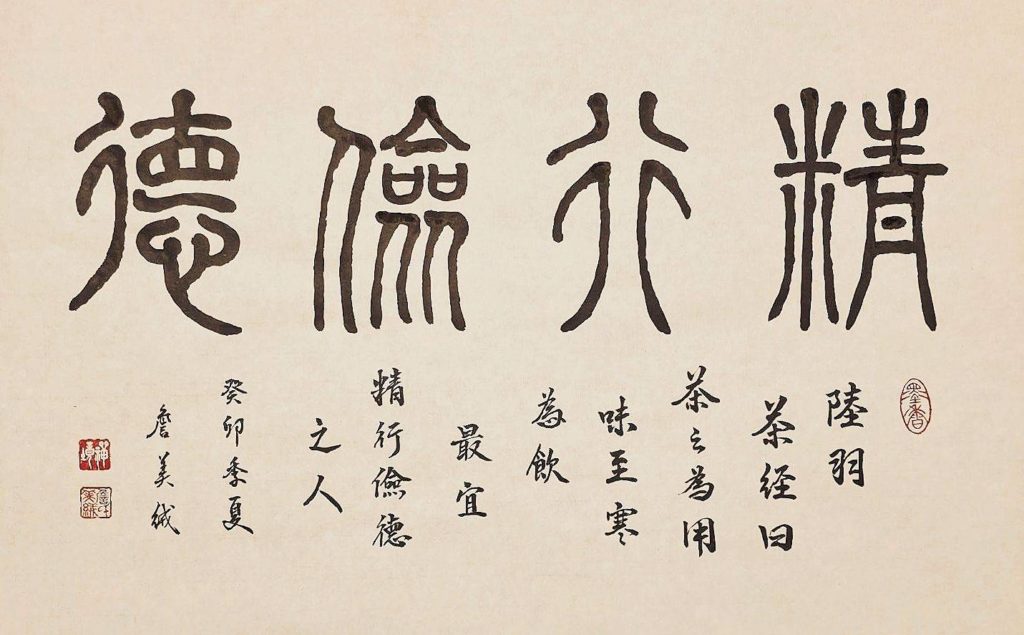 精行儉德
陸羽
茶経曰
茶之為用
味至寒
為飲
最宜
精行儉德
之人
癸卯季夏
詹美絨
墨香